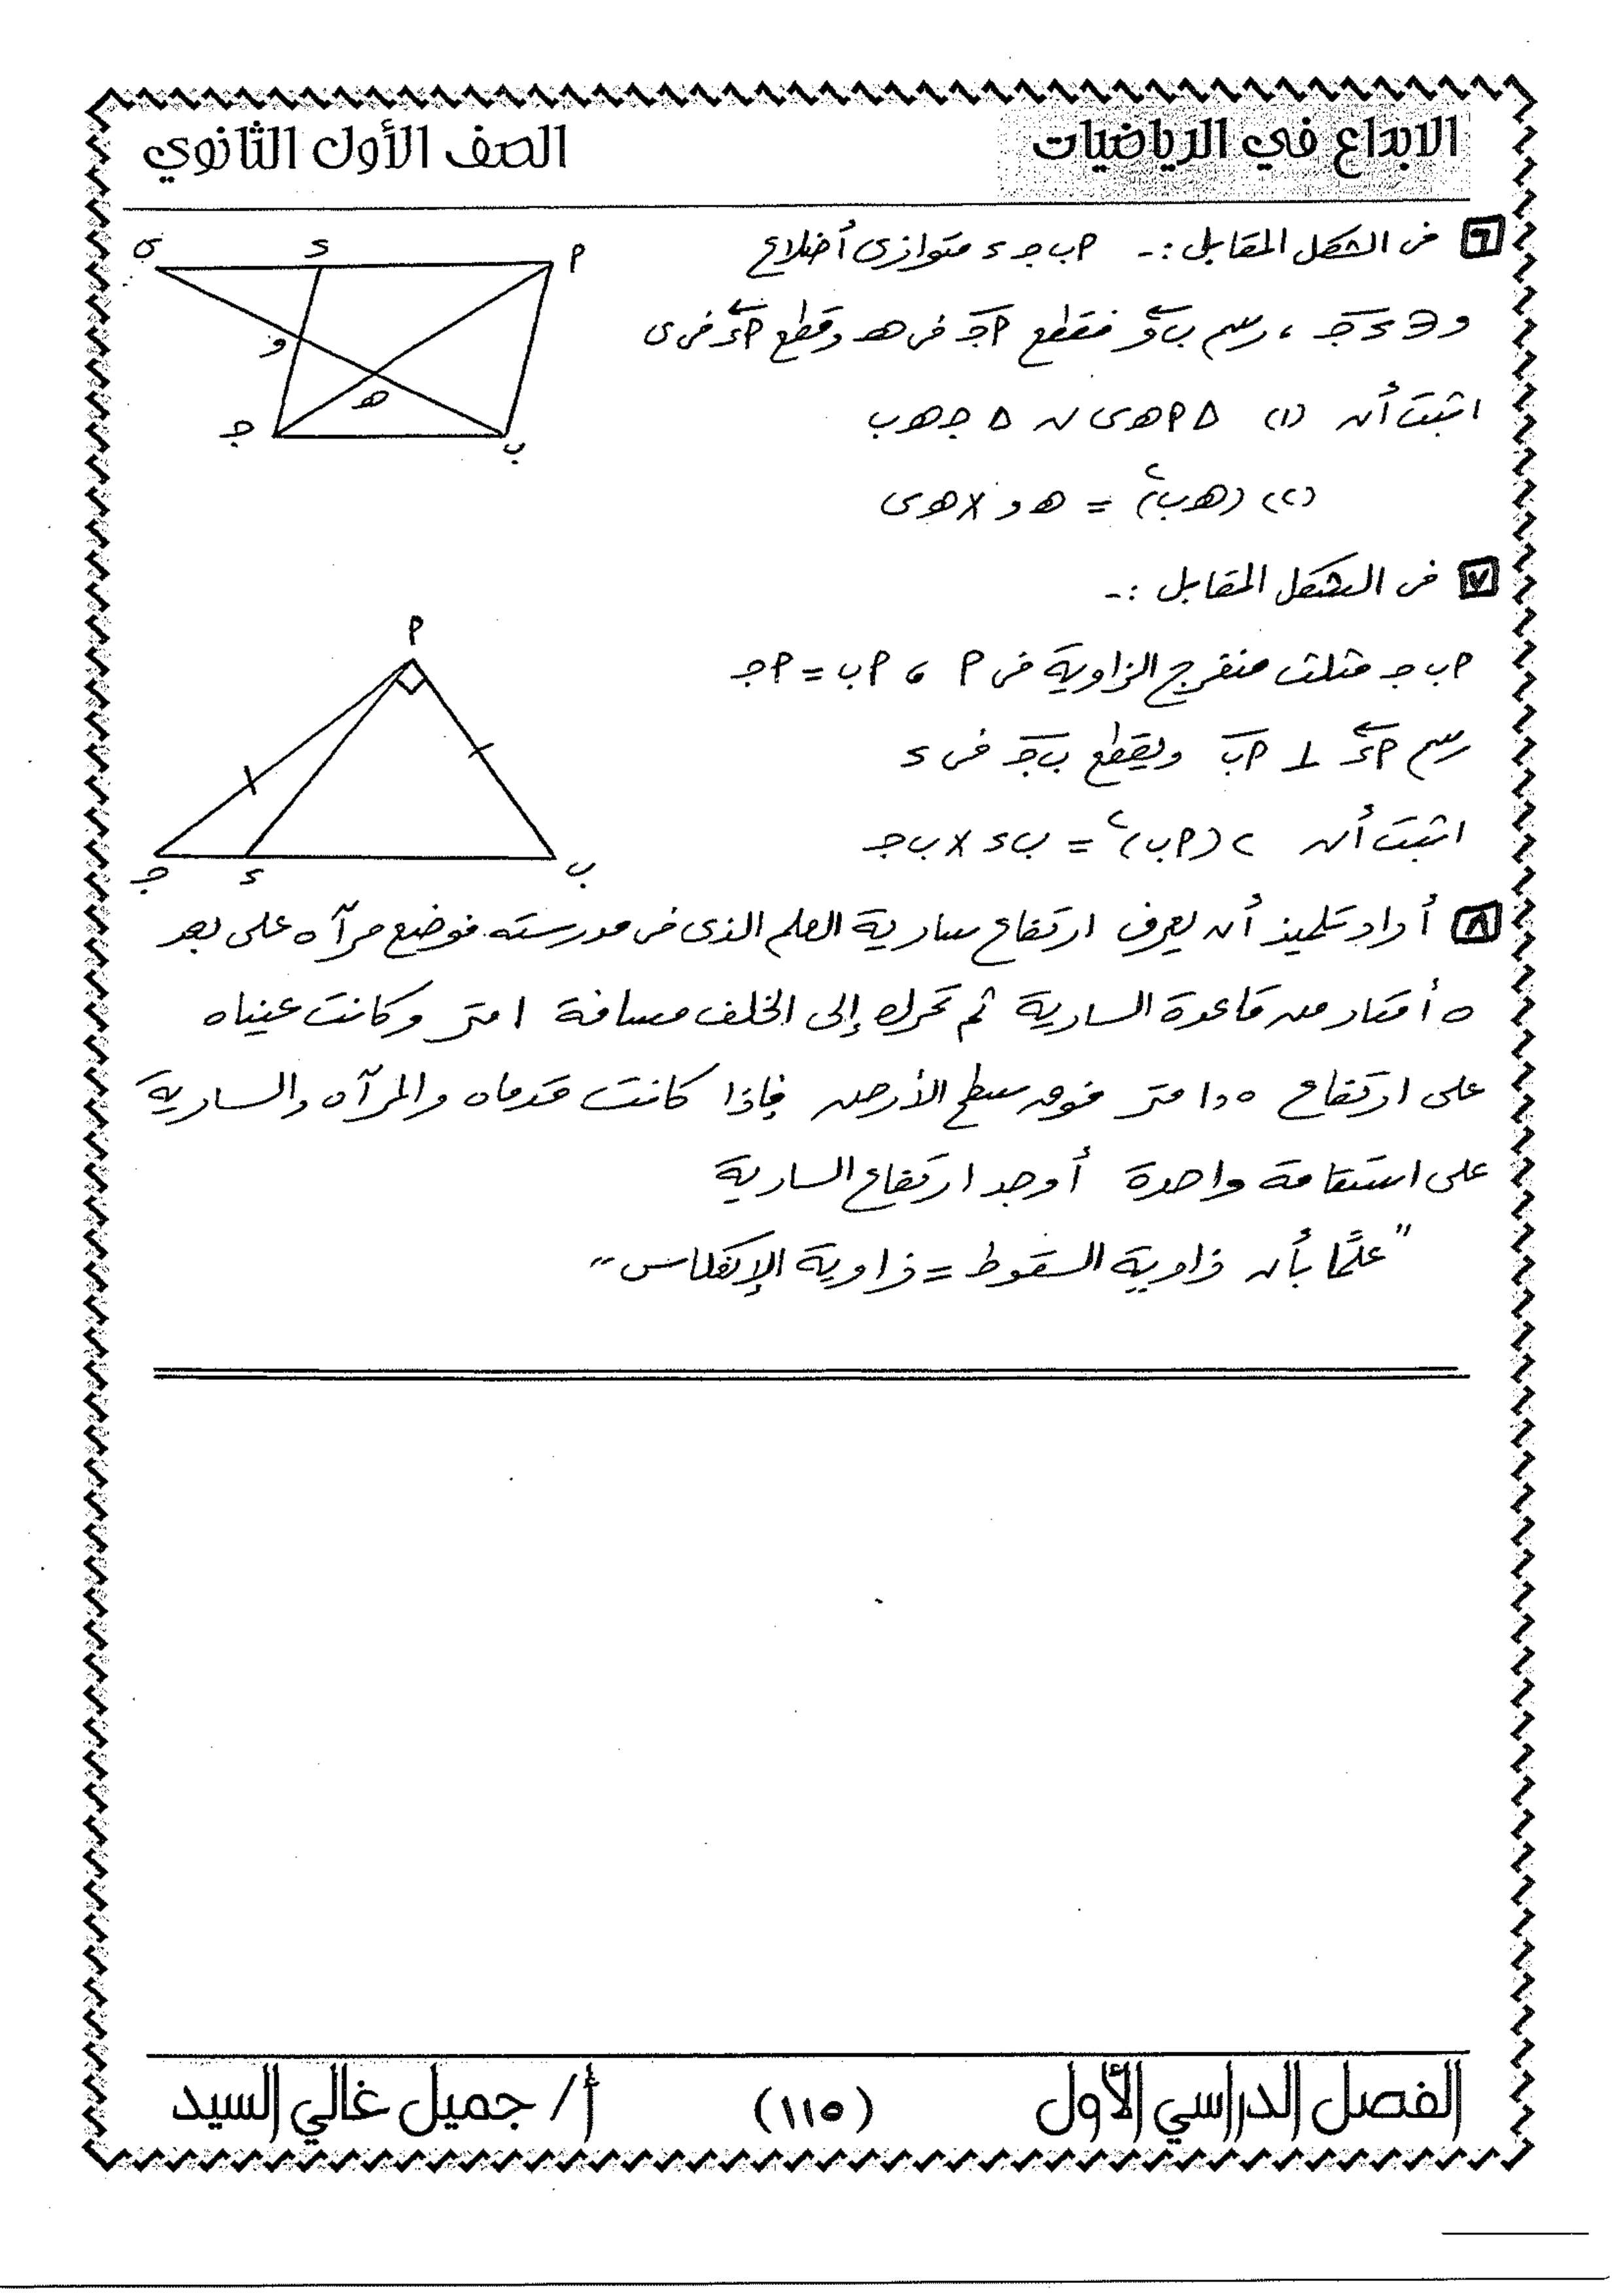 الابداع في الرياضيات
الصف الأول الثانوي
٦ فى الشكل المقابل :- أ ب جـ ء متوازى أضلاع
و ∈ ء جـ ، رسم ب و فقطع أ جـ فى هـ وقطع أ ء فى ى
اثبت أن (١) Δ أ هـ ى ~ Δ جـ هـ ب
(٢) (هـ ب)٢ = هـ و × هـ ى
ى
ء
أ
و
هـ
جـ
ب
٧ فى الشكل المقابل :-
أ ب جـ مثلث منفرج الزاوية فى أ ، أ ب = أ جـ
رسم أ ء ⊥ أ ب ويقطع ب جـ فى ء
اثبت أن ٢(أ ب)٢ = ب ء × ب جـ
أ
جـ
ء
ب
٨ أراد تلميذ أن يعرف ارتفاع سارية العلم الذى فى مدرسته فوضع مرآه على بعد
٥ أمتار من قاعدة السارية ثم تحرك إلى الخلف مسافة ١ متر وكانت عيناه
على ارتفاع ١,٥ متر فوق سطح الأرض فإذا كانت قدماه والمرآه والسارية
على استقامة واحدة أوجد ارتفاع السارية
"علمًا بأن زاوية السقوط = زاوية الإنعكاس"
الفصل الدراسي الأول
(١١٥)
أ/ جميل غالي السيد